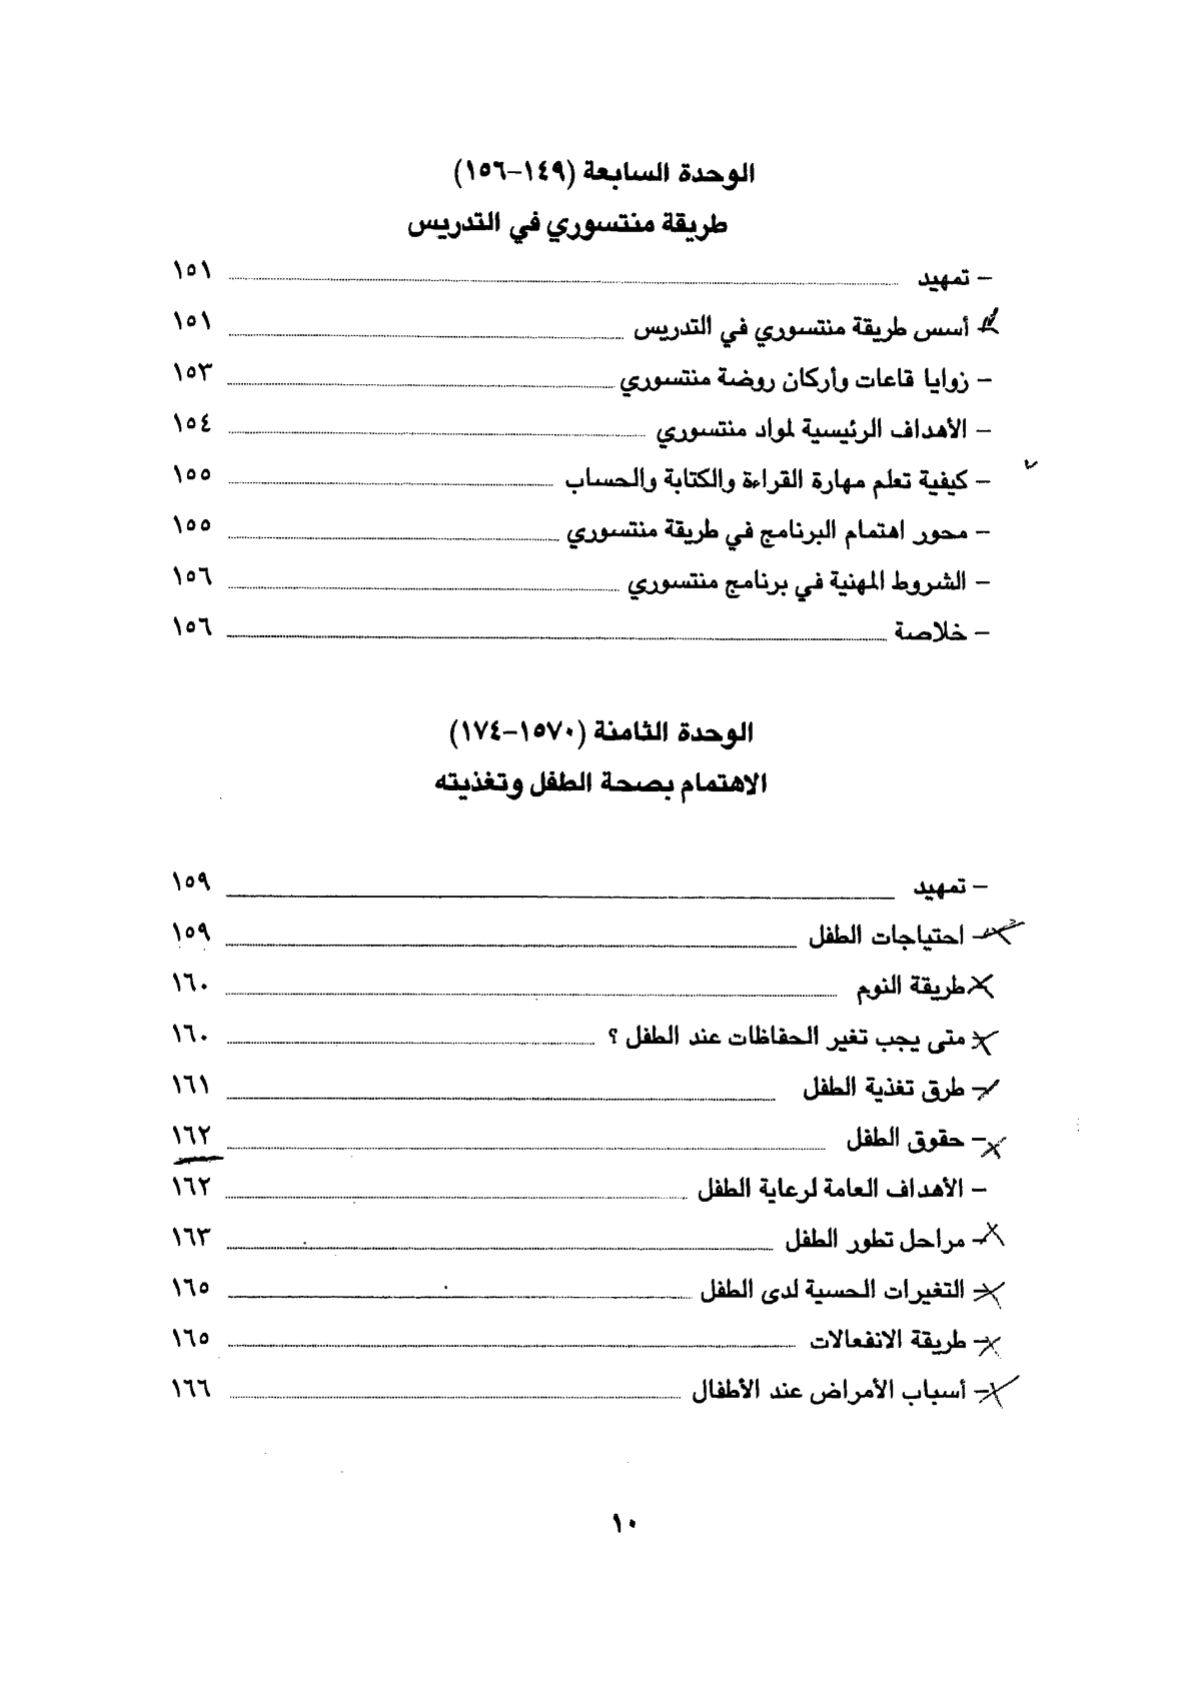 الوحدة السابعة (١٤٩–١٥٦)
طريقة منتسوري في التدريس
– تمهيد ١٥١
– أسس طريقة منتسوري في التدريس ١٥١
– زوايا قاعات وأركان روضة منتسوري ١٥٣
– الأهداف الرئيسية لمواد منتسوري ١٥٤
– كيفية تعلم مهارة القراءة والكتابة والحساب ١٥٥
– محور اهتمام البرنامج في طريقة منتسوري ١٥٥
– الشروط المهنية في برنامج منتسوري ١٥٦
– خلاصة ١٥٦
الوحدة الثامنة (١٥٧٠–١٧٤)
الاهتمام بصحة الطفل وتغذيته
– تمهيد ١٥٩
– احتياجات الطفل ١٥٩
– طريقة النوم ١٦٠
– متى يجب تغير الحفاظات عند الطفل ؟ ١٦٠
– طرق تغذية الطفل ١٦١
– حقوق الطفل ١٦٢
– الأهداف العامة لرعاية الطفل ١٦٢
– مراحل تطور الطفل ١٦٣
– التغيرات الحسية لدى الطفل ١٦٥
– طريقة الانفعالات ١٦٥
– أسباب الأمراض عند الأطفال ١٦٦
١٠